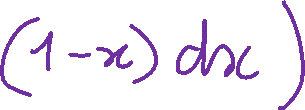 (1-x) dx)